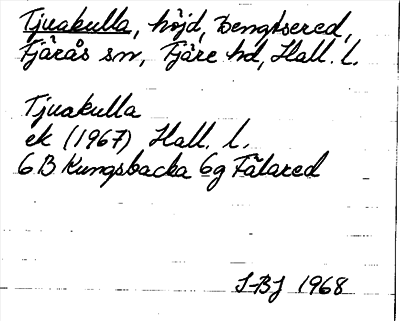 Tjuakulla, höjd, Bengtsered,
Fjärås sn, Fjäre hd, Hall. l.
Tjuakulla
ek (1967) Hall. l.
6 B Kungsbacka 6g Fälared
SBJ 1968